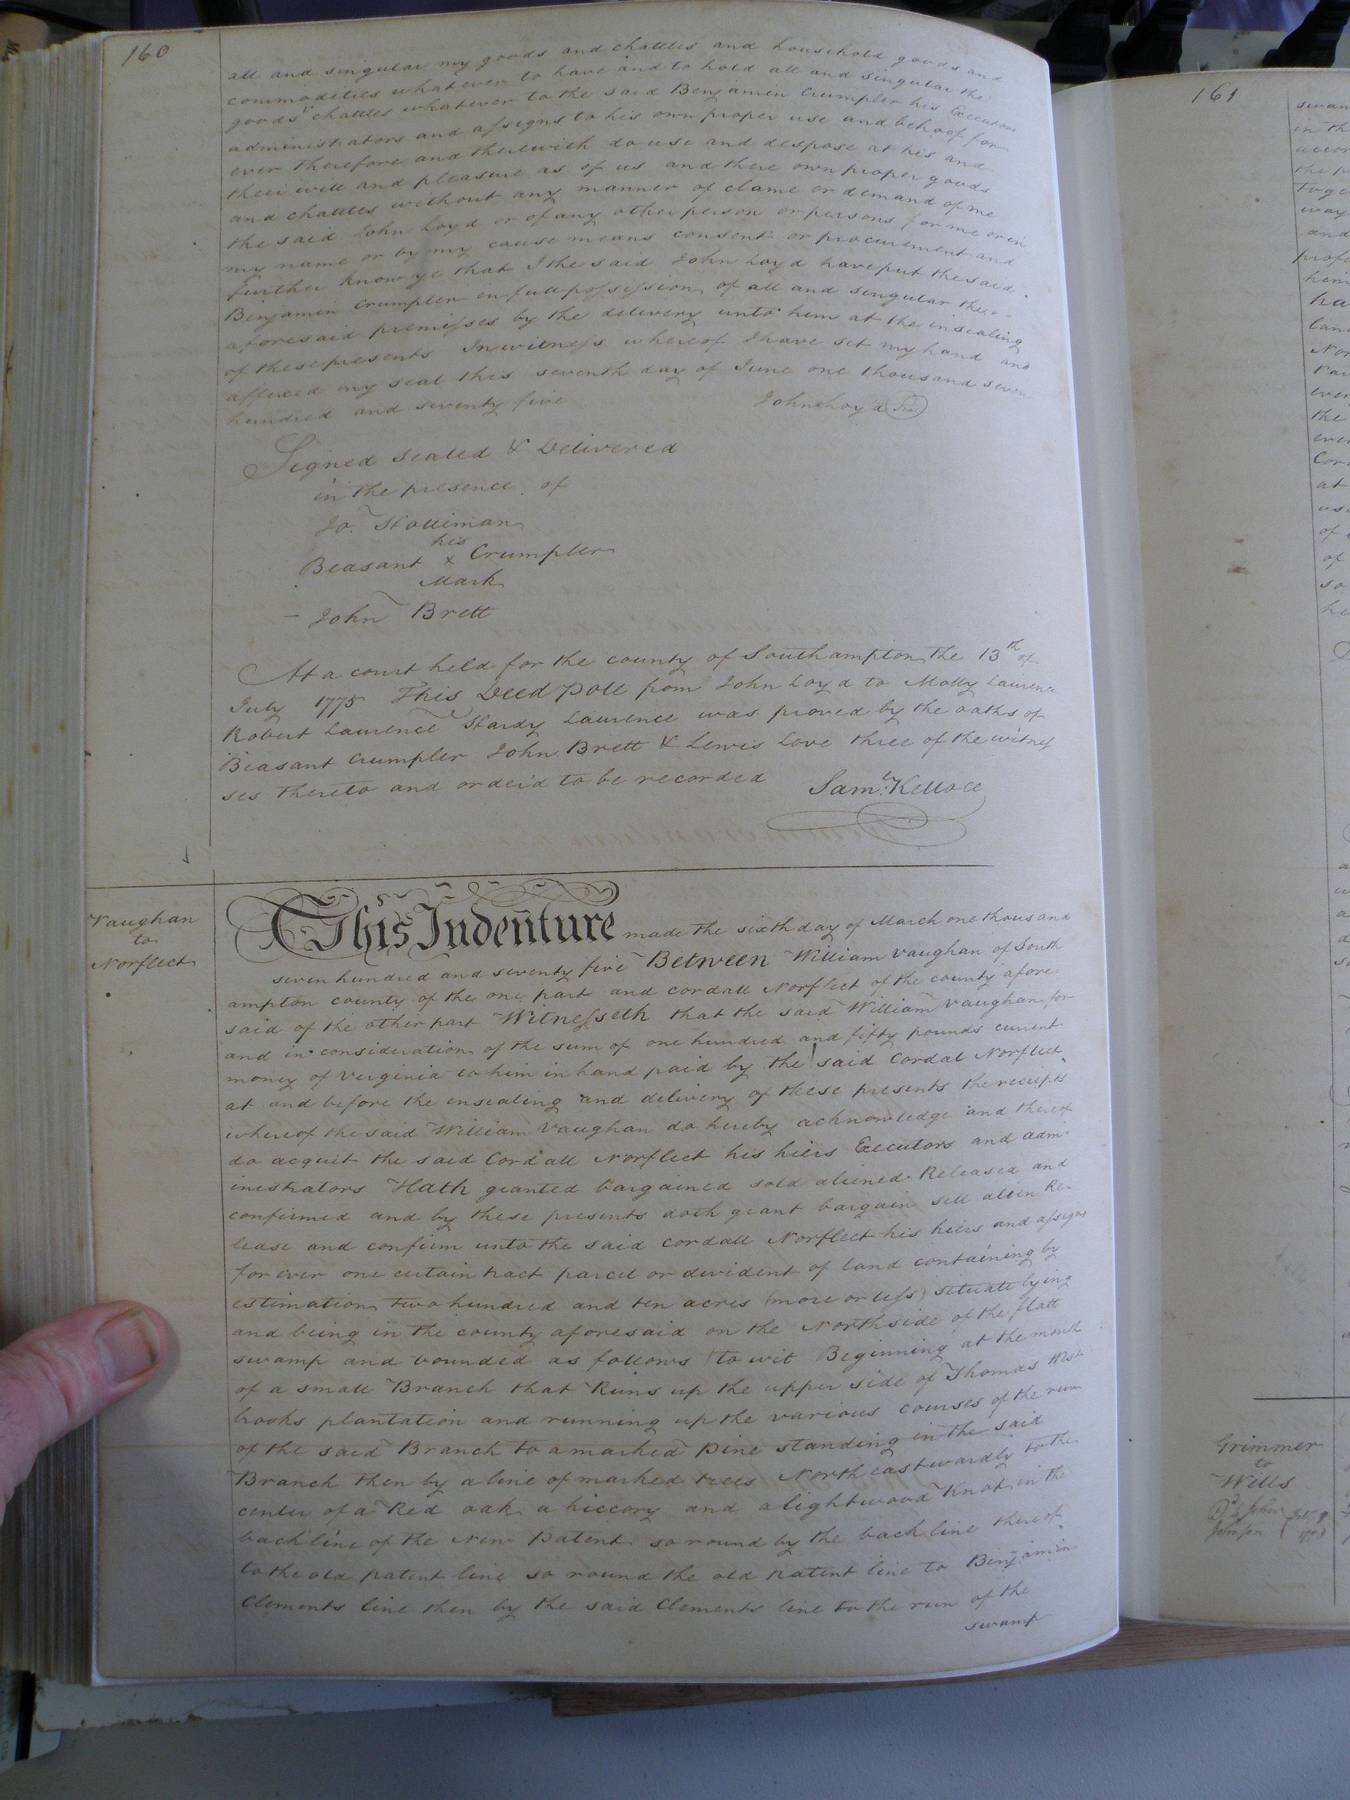 160
all and singular my goods and chattles and household goods and
commodities whatever to have and to hold all and singular the
goods chattles whatever to the said Benjamin Crumpler his Executors
administrators and assigns to his own proper use and behoof for
ever therefore and therewith do use and despose at his and
their will and pleasure as of us and there own proper goods
and chattles without any manner of clame or demand of me
the said John Loyd or of any other person or persons for me or in
my name or by my cause means consent or procurement and
further know ye that I the said John Loyd have put the said
Benjamin Crumpler in full possession of all and singular the
aforesaid premisses by the delivery unto him at the insealing
of these presents In witness whereof I have set my hand and
affixed my seal this seventh day of June one thousand seven
hundred and seventy five John Loyd Seal
Signed Sealed & Delivered
in the presence of
Jo. Holliman
his
Beasant x Crumpler
Mark
John Brett
At a court held for the county of Southampton the 13th of
July 1775 This Deed Poll from John Loyd to Molly Laurence
Robert Laurence Hardy Laurence was proved by the oaths of
Beasant Crumpler John Brett & Lewis Love three of the witnes
ses thereto and order'd to be recorded Saml. Kelloce
Vaughan
to
Norflect
This Indenture made the sixth day of March one thousand
seven hundred and seventy five Between William Vaughan of South
ampton county of the one part and Cordall Norflect of the county afore
said of the other part Witnesseth that the said William Vaughan for
and in consideration of the sum of one hundred and fifty pounds current
money of Verginia to him in hand paid by the said Cordal Norflect
at and before the ensealing and delivery of these presents the receipts
whereof the said William Vaughan do hereby acknowledge and thereof
do acquit the said Cordall Norflect his hiers Executors and adm
inistrators Hath granted bargained sold aliened Released and
confirmed and by these presents doth grant bargain sell alien Re
lease and confirm unto the said Cordall Norflect his hiers and assigns
for ever one certain tract parcel or devident of land containing by
estimation two hundred and ten acres (more or less) situate lying
and being in the county aforesaid on the North side of the flatt
swamp and bounded as follows (to wit Beginning at the mouth
of a small Branch that Runs up the upper side of Thomas West
brooks plantation and running up the various courses of the run
of the said Branch to a marked Pine standing in the said
Branch then by a line of marked trees North eastwardly to the
center of a Red oak a hiccory and a lightwood Knot in the
back line of the New Patent so round by the back line thereof
to the old patent line so round the old patent line to Benjamin
Clements line then by the said Clements line to the run of the
swamp
161
Grimmer
to
Wills